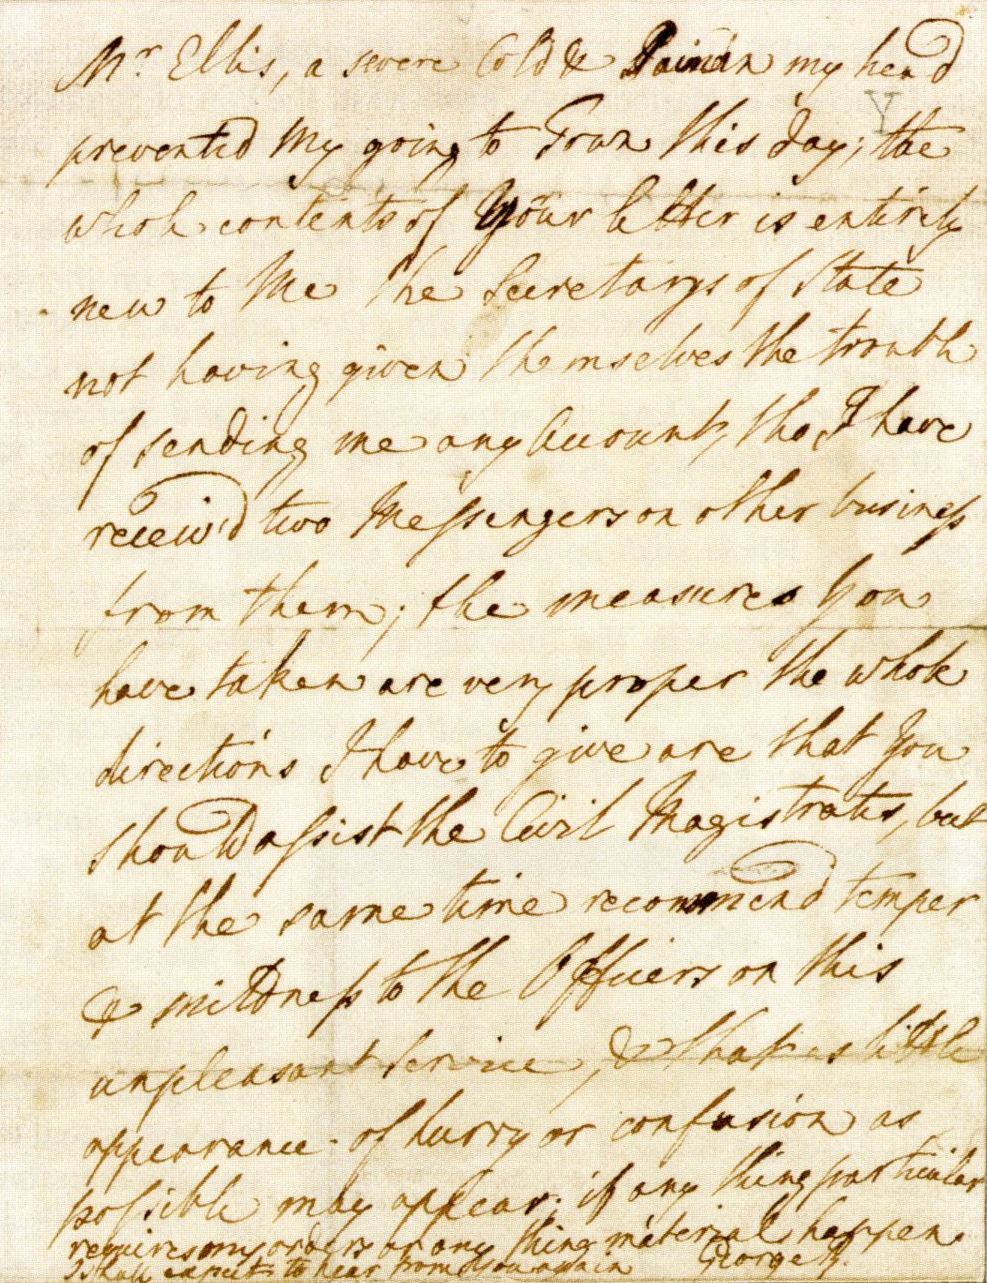 Mr. Ellis, a severe Cold & Pain in my head
Y
prevented My going to Town this day; the
whole contents of Your letter is entirely
new to Me the Secretarys of State
not having given themselves the trouble
of sending me any Account, tho' I have
receiv'd two Messengers on other business
from them; the measures You
have taken are very proper the whole
directions I have to give are that You
should assist the Civil Magistrates, but
at the same time recommend temper
& mildness to the Officers on this
unpleasant Service, & that as little
appearance of hurry or confusion as
possible may appear; if any thing particular
requires my orders or any thing material happen
I shall expect to hear from You again George R.